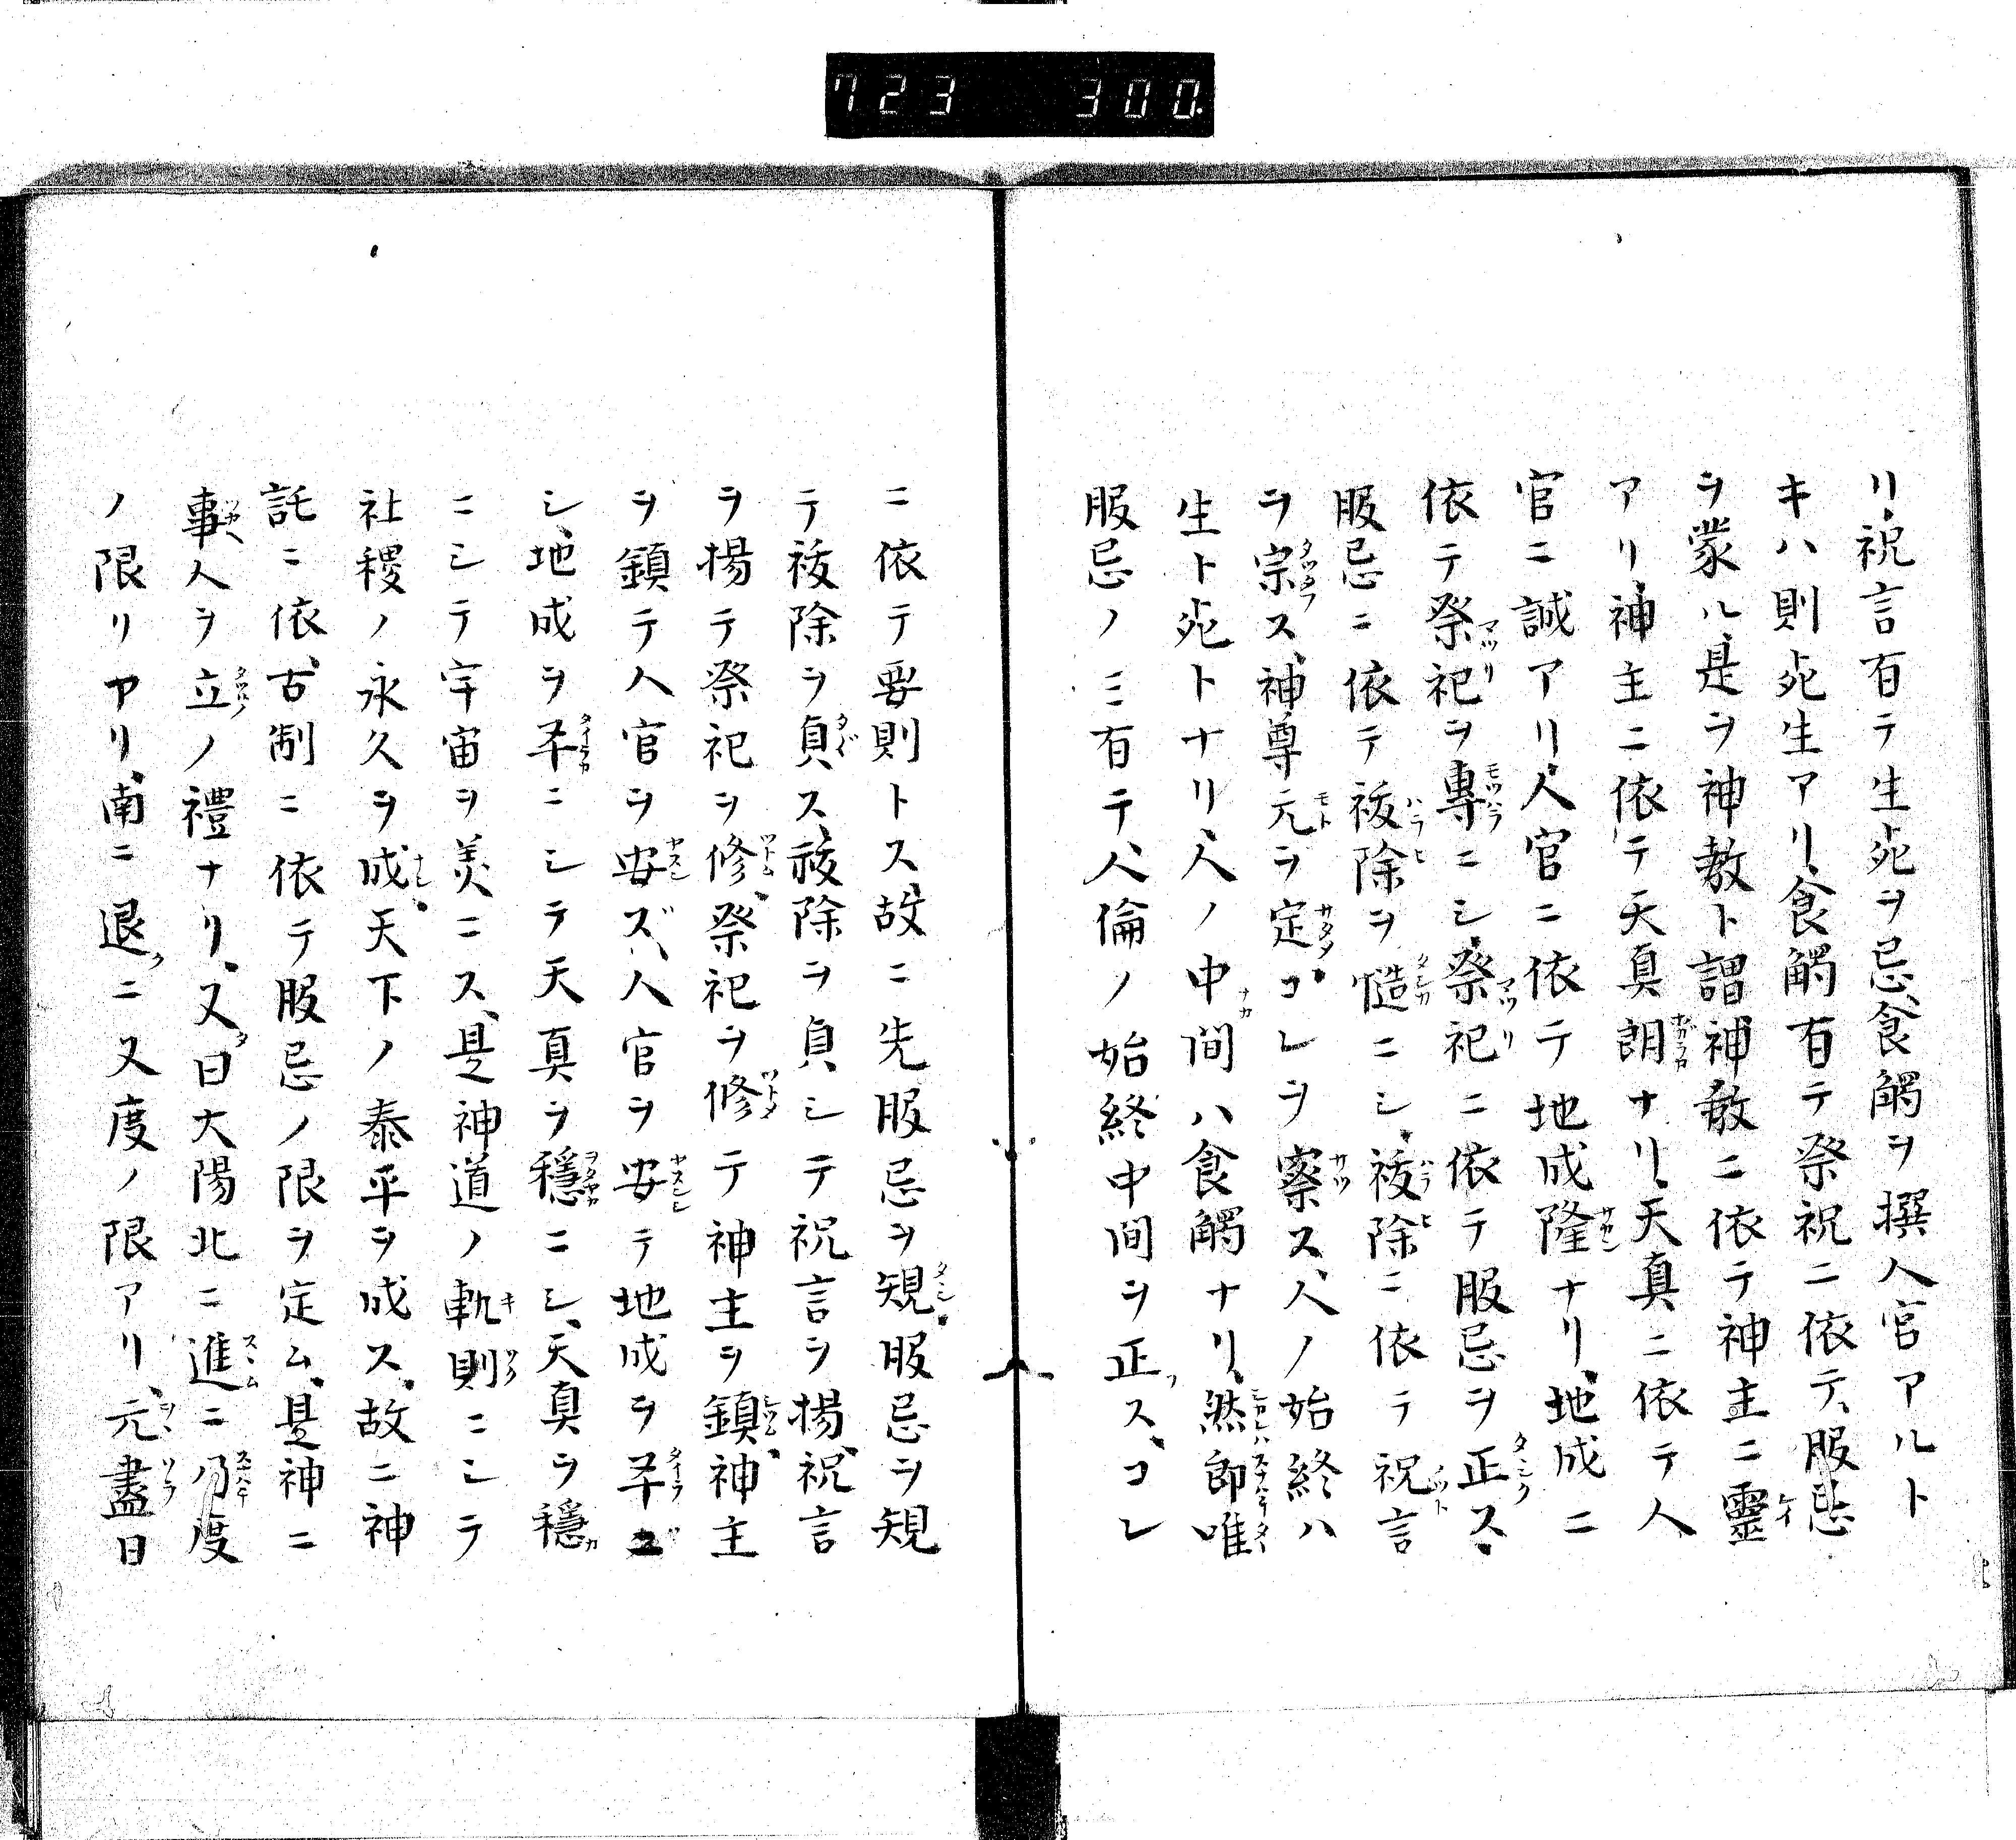 723 300
リ、祝言有テ生死ヲ忌、食觸ヲ撰人官アルト
キハ則死生アリ、食觸有テ祭祝ニ依テ、服忌
ヲ蒙ル、是ヲ神教ト謂神教ニ依テ神主ニ靈
アリ神主ニ依テ天真朗ナリ、天真ニ依テ人
官ニ誠アリ、人官ニ依テ地成隆ナリ、地成ニ
依テ祭祀ヲ專ニシ、祭祀ニ依テ服忌ヲ正ス、
服忌ニ依テ祓除ヲ慥ニシ、祓除ニ依テ祝言
ヲ宗ス、神尊元ヲ定コレヲ察ス、人ノ始終ハ
生ト死トナリ、人ノ中間ハ食觸ナリ、然即唯
服忌ノミ有テ、人倫ノ始終中間ヲ正ス、コレ
ニ依テ要則トス故ニ先服忌ヲ規、服忌ヲ規
テ祓除ヲ負ス、祓除ヲ負シテ祝言ヲ揚、祝言
ヲ揚テ祭祀ヲ修、祭祀ヲ修テ神主ヲ鎮、神主
ヲ鎮テ人官ヲ安ズ、人官ヲ安テ地成ヲ平ニ
シ、地成ヲ平ニシテ天真ヲ穩ニシ、天真ヲ穩
ニシテ宇宙ヲ美ニス、是神道ノ軌則ニシテ
社稷ノ永久ヲ成、天下ノ泰平ヲ成ス、故ニ神
託ニ依、古制ニ依テ服忌ノ限ヲ定ム、是神ニ
事人ヲ立ノ禮ナリ、又曰大陽北ニ進ニ乃度
ノ限リアリ、南ニ退ニ又度ノ限アリ、元盡日